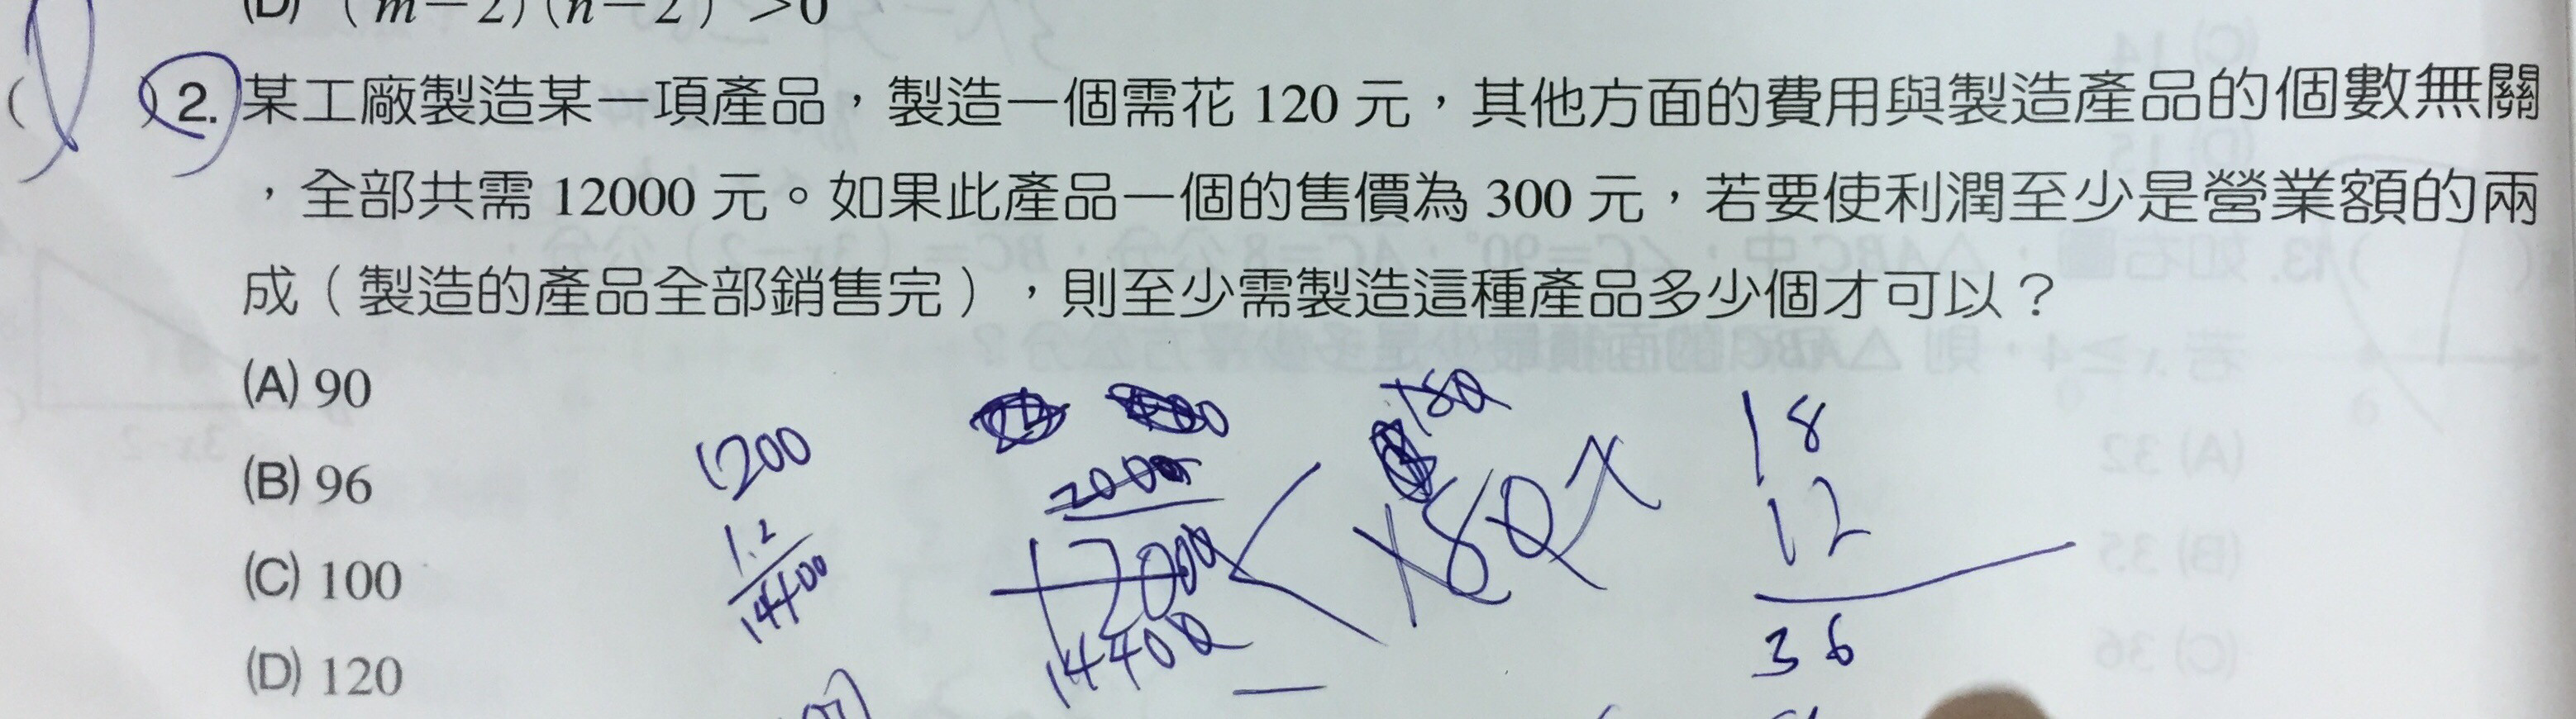 (D) (m－2)(n－2) ＞0
( ) 2. 某工廠製造某一項產品，製造一個需花 120 元，其他方面的費用與製造產品的個數無關
，全部共需 12000 元。如果此產品一個的售價為 300 元，若要使利潤至少是營業額的兩
成（製造的產品全部銷售完），則至少需製造這種產品多少個才可以？
(A) 90
(B) 96
(C) 100
(D) 120
1200
1.2
14400
12000 < 180x
14400
180
18
12
36